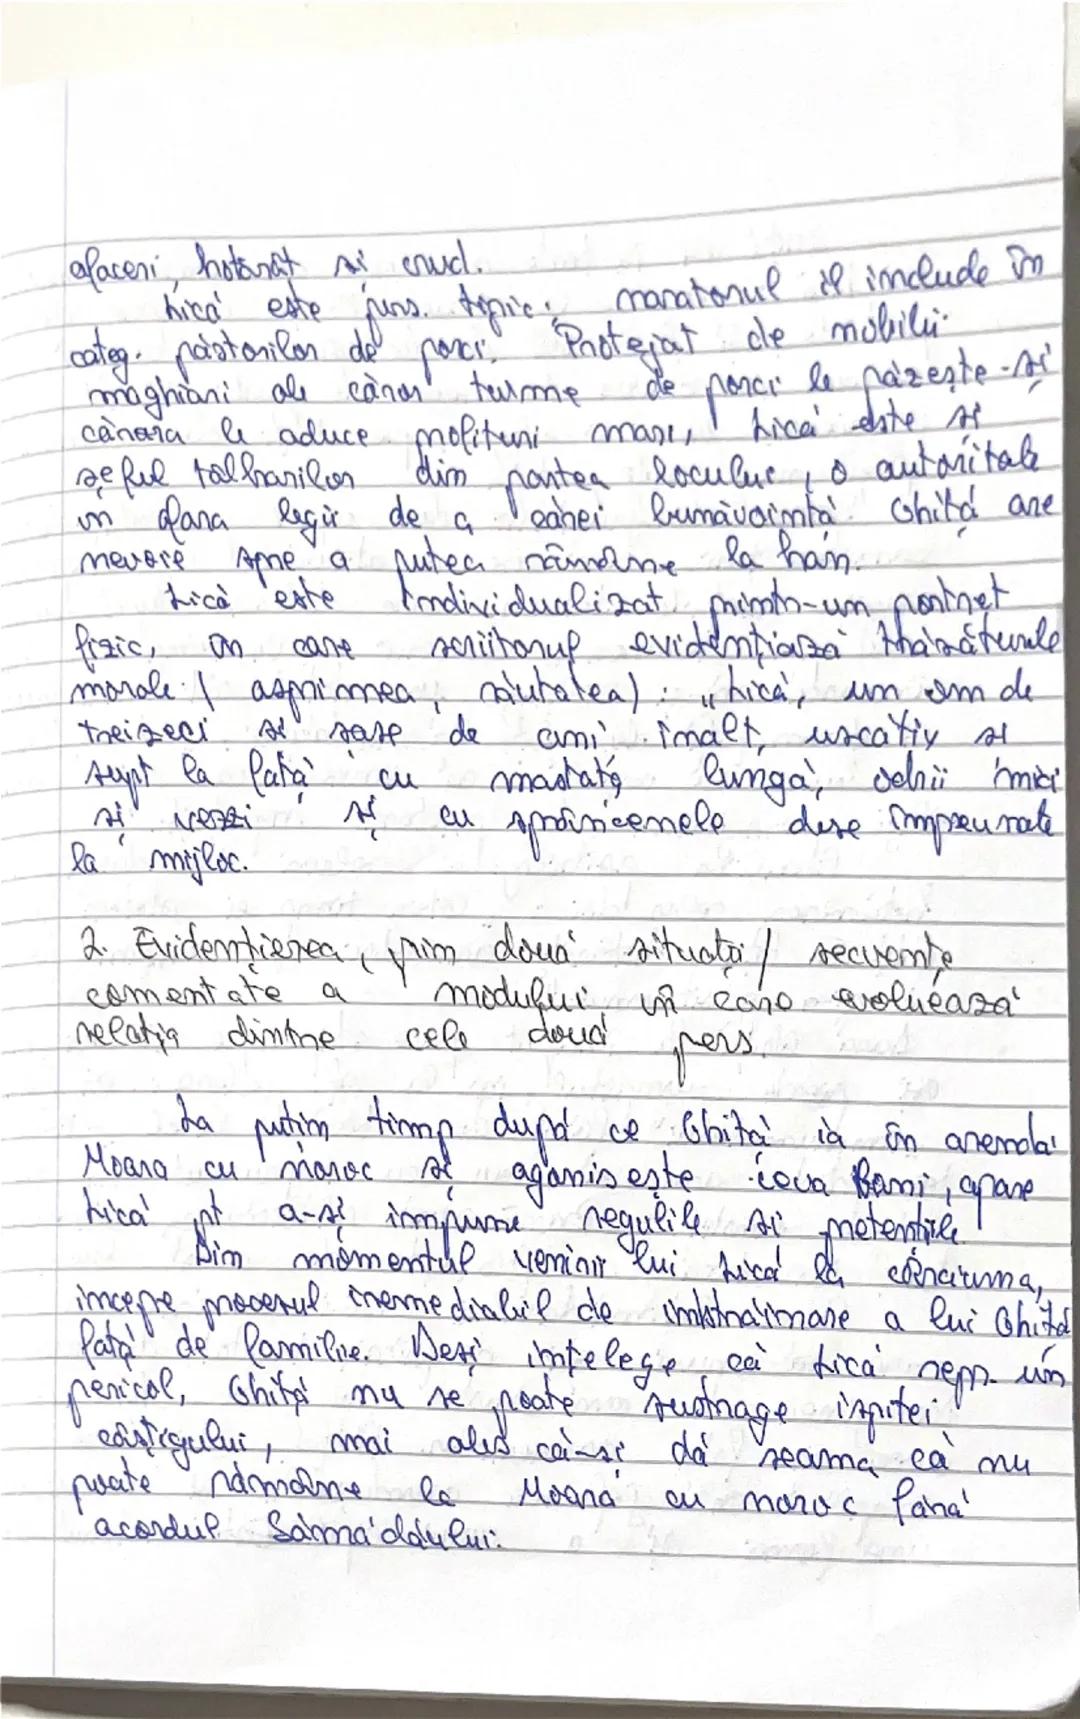 afaceri, hotărât și crud.
Lică este pers. tipic: naratorul îl include în
categ. păstorilor de porci. Protejat de mobilii
maghiari ale căror turme de porci le păzește și
cărora le aduce profituri mari, Lică este și
șeful tâlharilor din partea locului, o autoritate
în afara legii de a cărei bunăvoință Ghiță are
nevoie spre a putea rămâne la han.
Lică este individualizat printr-un portret
fizic, în care scriitorul evidențiază trăsăturile
morale (asprimea, răutatea): „Lică, un om de
treizeci și șase de ani înalt, uscățiv și
supt la față cu mustață lungă, ochii mici
și verzi și cu sprâncenele dese împreunate
la mijloc.
2. Evidențierea, prin două situații / secvențe
comentate a modului în care evoluează
relația dintre cele două pers.
La puțin timp după ce Ghiță ia în arendă
Moara cu noroc și agonisește ceva Bani, apare
Lică pt a-și impune regulile și pretențiile
Din momentul venirii lui Lică la cârciuma,
începe procesul iremediabil de înstrăinare a lui Ghiță
față de familie. Deși înțelege că Lică repr. un
pericol, Ghiță nu se poate sustrage ispitei
câștigului, mai ales că-și dă seama că nu
poate rămâne la Moara cu noroc fără
acordul Sămădăului.